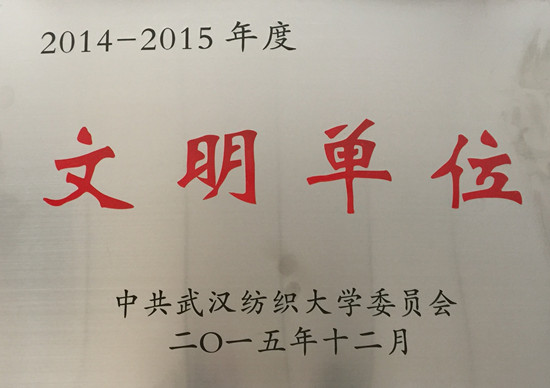 2014-2015 年度
文明单位
中共武汉纺织大学委员会
二〇一五年十二月